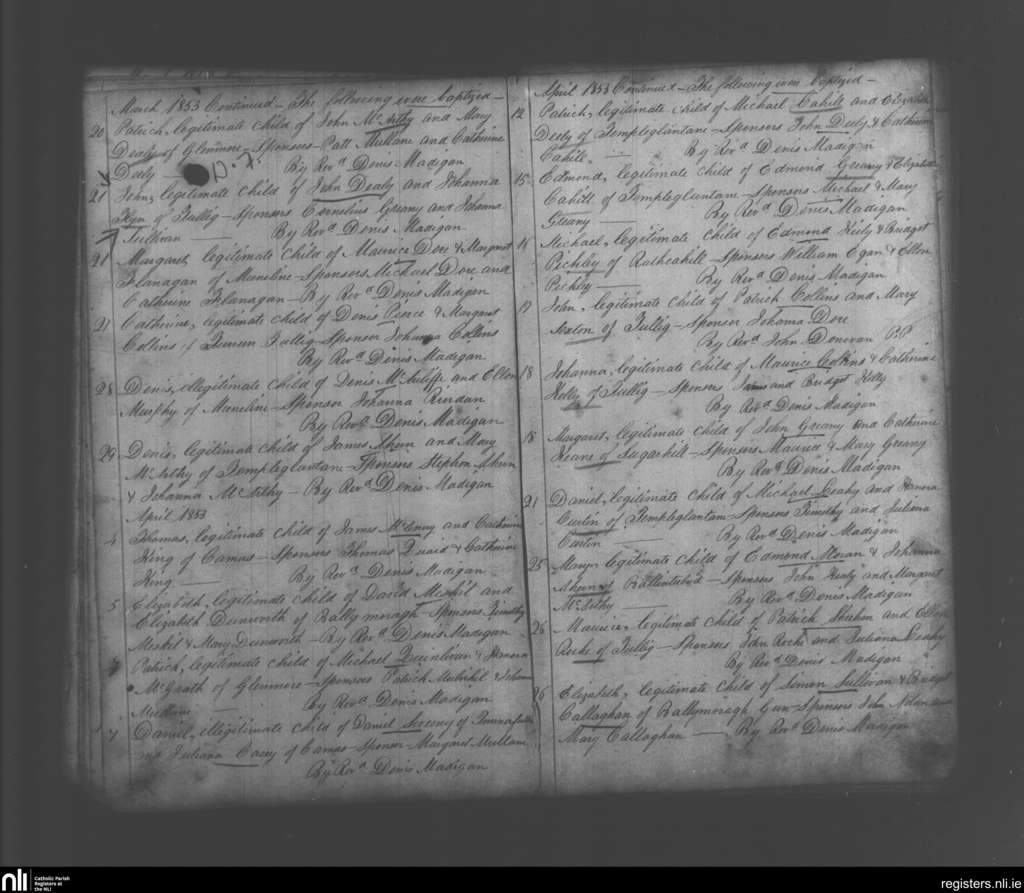 March 1853 Continued - The following were baptized -
20 Patrick, legitimate child of John McArthy and Mary
Dealy of Glenmore - Sponsors - Patt Mullane and Catherine
Deely By Revd Denis Madigan
21 John, legitimate child of John Dealy and Johanna
of Tullig - Sponsors Cornelius Greany and Johanna
Sullivan - By Revd Denis Madigan
21 Margaret, legitimate child of Maurice Dore & Margaret
Flanagan of Meneline - Sponsors Michael Dore and
Catherine Flanagan - By Revd Denis Madigan
21 Catherine, legitimate child of Denis Pierce & Margaret
Collins of Tullig - Sponsor Johanna Collins
By Revd Denis Madigan
28 Denis, illegitimate child of Denis McAuliffe and Ellen
Murphy of Meneline - Sponsor Johanna Riordan
By Revd Denis Madigan
29 Denis, legitimate child of James Ahern and Mary
McArthy of Templeglantane - Sponsors Stephen Ahern
& Johanna McArthy - By Revd Denis Madigan
April 1853
4 Thomas, legitimate child of James McEnery and Catherine
King of Camas - Sponsors Thomas Quaid & Catherine
King - By Revd Denis Madigan
5 Elizabeth, legitimate child of David Meskil and
Elizabeth Dunworth of Ballymonagh - Sponsors Timothy
Meskil & Mary Dunworth - By Revd Denis Madigan
7 Patrick, legitimate child of Michael Quinlivan & Honora
McGrath of Glenmore - Sponsors Patrick & Johanna
Mullane - By Revd Denis Madigan
7 Daniel, illegitimate child of Daniel of
and Juliana Casey of Camas - Sponsor Margaret Mullane
By Revd Denis Madigan
April 1853 Continued - The following were baptized -
12 Patrick, legitimate child of Michael Cahill and Elizabeth
Deely of Templeglantane - Sponsors John Deely & Catherine
Cahill - By Revd Denis Madigan
15 Edmond, legitimate child of Edmond Greany & Elizabeth
Cahill of Templeglantane - Sponsors Michael & Mary
Greany - By Revd Denis Madigan
16 Michael, legitimate child of Edmond Hely & Bridget
Pickley of Rathcahill - Sponsors William Egan & Ellen
Pickley - By Revd Denis Madigan
17 John, legitimate child of Patrick Collins and Mary
of Tullig - Sponsor Johanna Dore
By Revd John Donovan PP
18 Johanna, legitimate child of Maurice Collins & Catherine
Kelly of Tullig - Sponsors James and Bridget Kelly
By Revd Denis Madigan
18 Margaret, legitimate child of John Greany and Catherine
Keane of Sugarhill - Sponsors Maurice & Mary Greany
By Revd Denis Madigan
21 Daniel, legitimate child of Michael Leahy and Honora
Curtin of Templeglantan - Sponsors Timothy and Juliana
Curtin - By Revd Denis Madigan
25 Mary, legitimate child of Edmond Moran & Johanna
Ahern of Ballintubrid - Sponsors John Healy and Margaret
McArthy - By Revd Denis Madigan
26 Maurice, legitimate child of Patrick Sheehan and Ellen
Roche of Tullig - Sponsors John Roche and Juliana Leahy
By Revd Denis Madigan
26 Elizabeth, legitimate child of Simon Sullivan & Bridget
Callaghan of Ballymonagh Gun - Sponsors John Nolan and
Mary Callaghan - By Revd Denis Madigan
nli Catholic Parish
Registers at
the NLI
registers.nli.ie